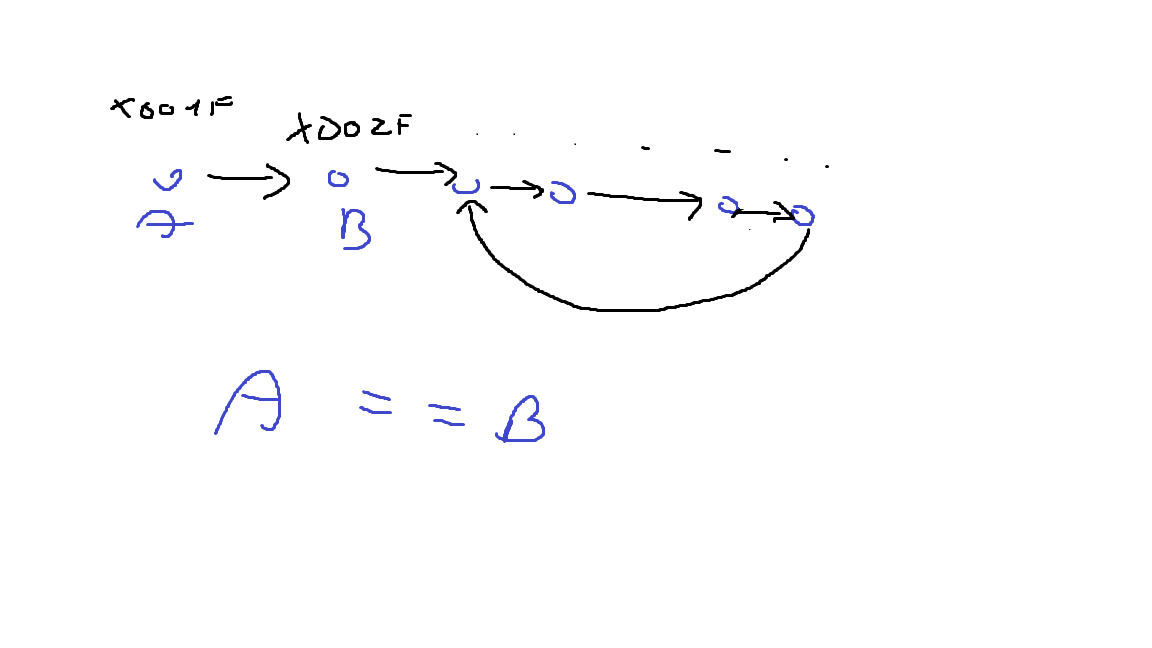 X001F
X002F
A
B
A == B